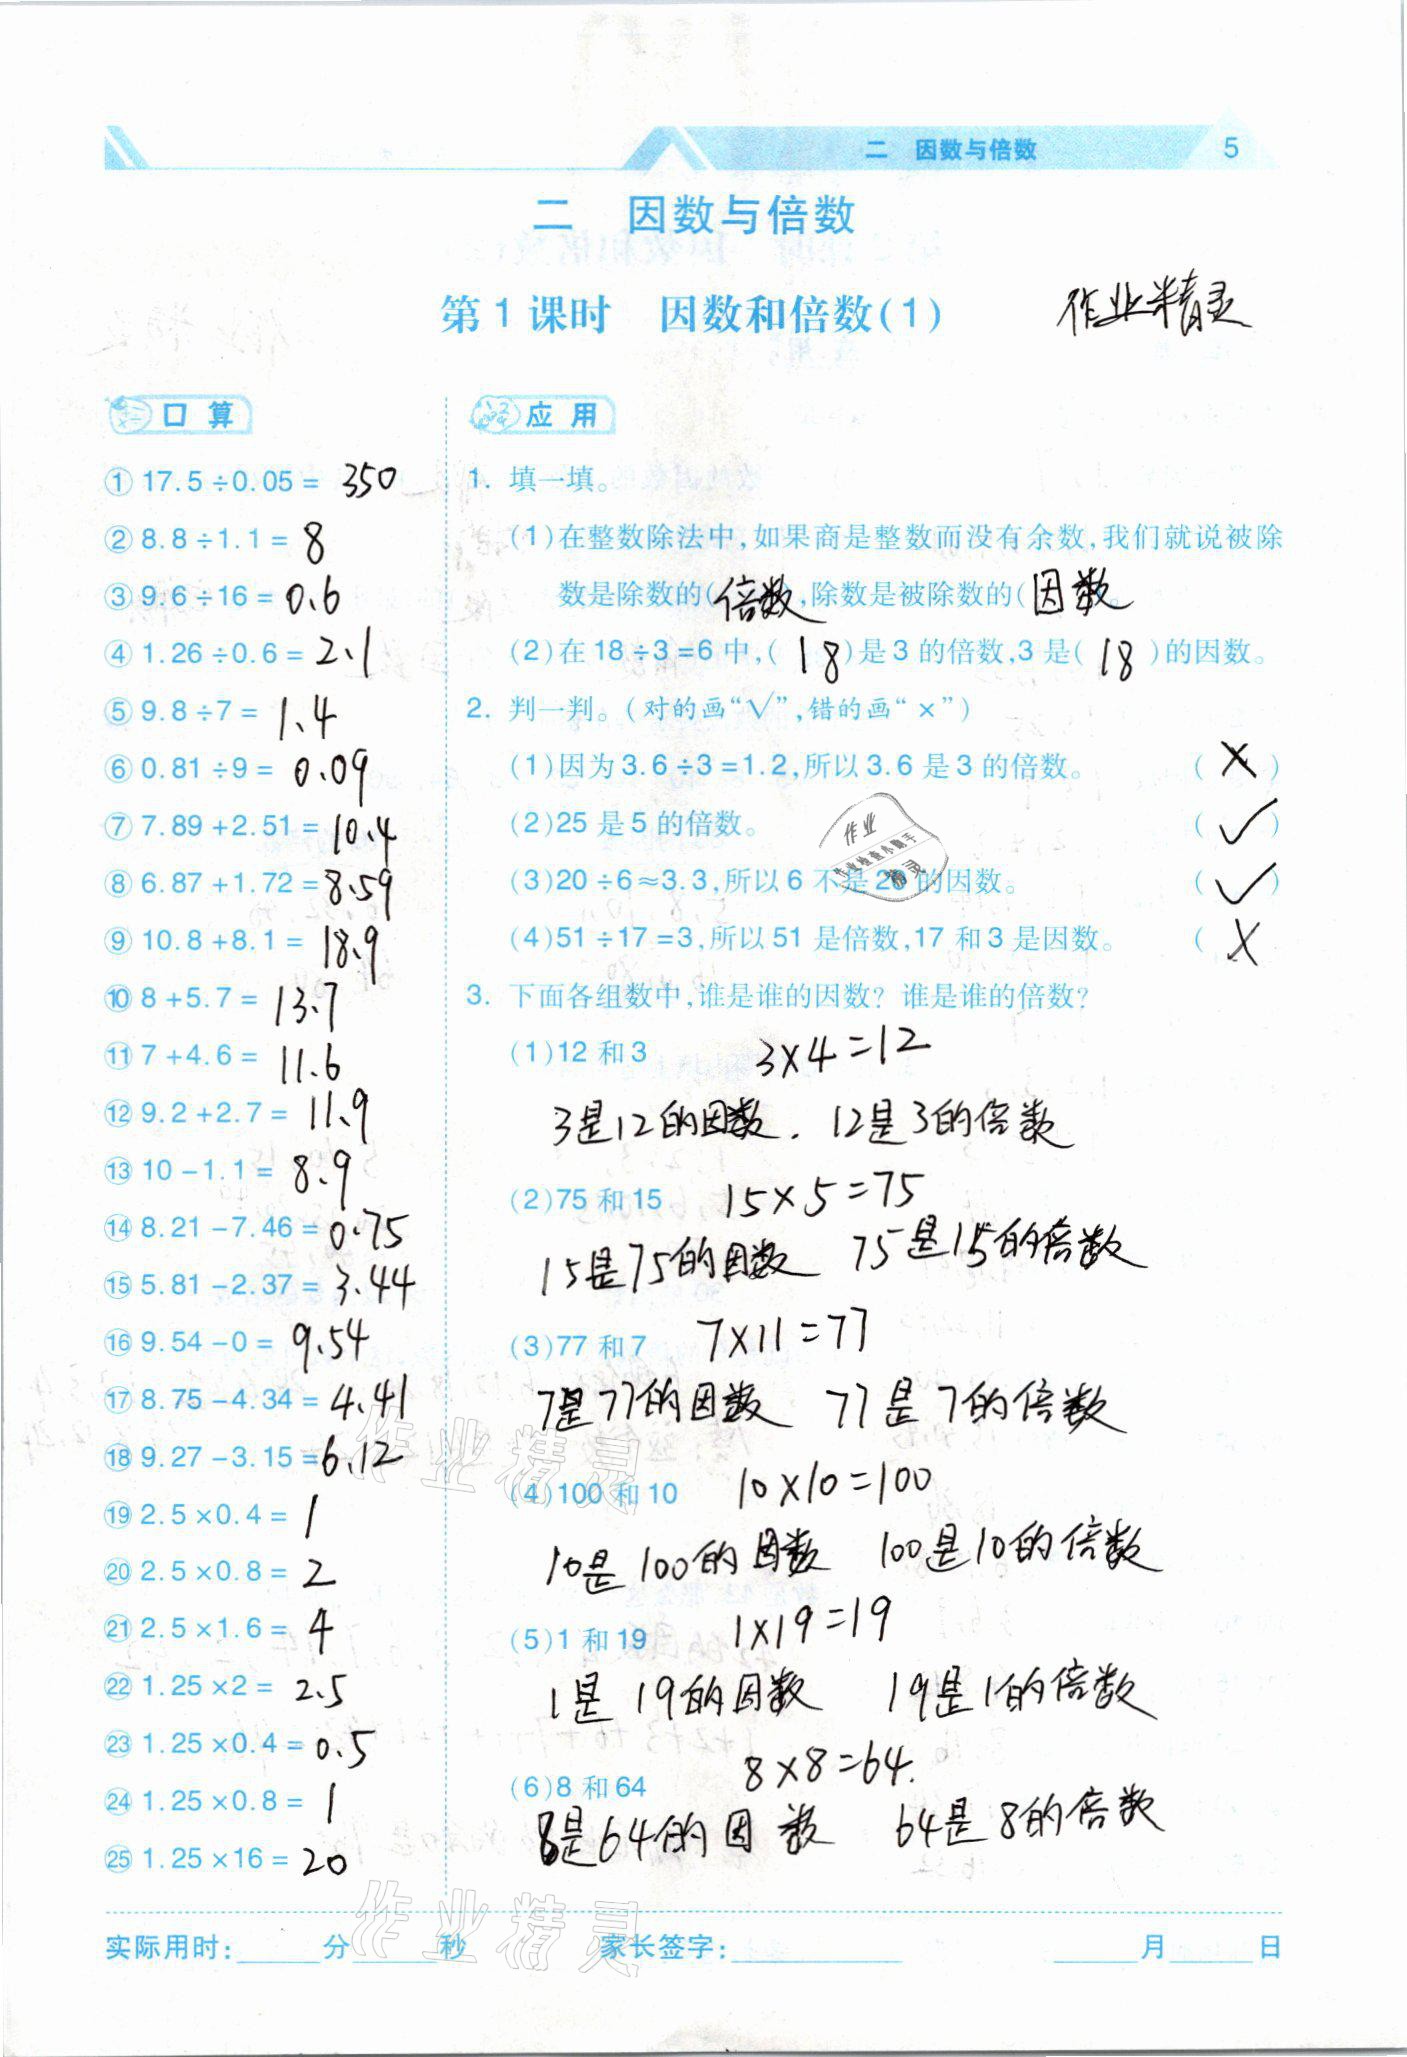 二 因数与倍数 5
二 因数与倍数
第1课时 因数和倍数(1) 作业精灵
口算
① 17.5÷0.05= 350
② 8.8÷1.1= 8
③ 9.6÷16= 0.6
④ 1.26÷0.6= 2.1
⑤ 9.8÷7= 1.4
⑥ 0.81÷9= 0.09
⑦ 7.89+2.51= 10.4
⑧ 6.87+1.72= 8.59
⑨ 10.8+8.1= 18.9
⑩ 8+5.7= 13.7
⑪ 7+4.6= 11.6
⑫ 9.2+2.7= 11.9
⑬ 10-1.1= 8.9
⑭ 8.21-7.46= 0.75
⑮ 5.81-2.37= 3.44
⑯ 9.54-0= 9.54
⑰ 8.75-4.34= 4.41
⑱ 9.27-3.15= 6.12
⑲ 2.5×0.4= 1
⑳ 2.5×0.8= 2
㉑ 2.5×1.6= 4
㉒ 1.25×2= 2.5
㉓ 1.25×0.4= 0.5
㉔ 1.25×0.8= 1
㉕ 1.25×16= 20
应用
1. 填一填。
(1)在整数除法中,如果商是整数而没有余数,我们就说被除
数是除数的(倍数),除数是被除数的(因数)。
(2)在18÷3=6中,( 18 )是3的倍数,3是( 18 )的因数。
2. 判一判。(对的画“√”,错的画“×”)
(1)因为3.6÷3=1.2,所以3.6是3的倍数。 ( × )
(2)25是5的倍数。 ( √ )
(3)20÷6≈3.3,所以6不是20的因数。 ( √ )
(4)51÷17=3,所以51是倍数,17和3是因数。 ( ×
3. 下面各组数中,谁是谁的因数? 谁是谁的倍数?
(1)12和3 3×4=12
3是12的因数. 12是3的倍数
(2)75和15 15×5=75
15是75的因数 75是15的倍数
(3)77和7 7×11=77
7是77的因数 77是7的倍数
(4)100和10 10×10=100
10是100的因数 100是10的倍数
(5)1和19 1×19=19
1是19的因数 19是1的倍数
(6)8和64 8×8=64.
8是64的因数 64是8的倍数
作业
作业检查小助手
精灵
作业精灵
作业精灵
实际用时:______分______秒 家长签字:____________ ______月______日